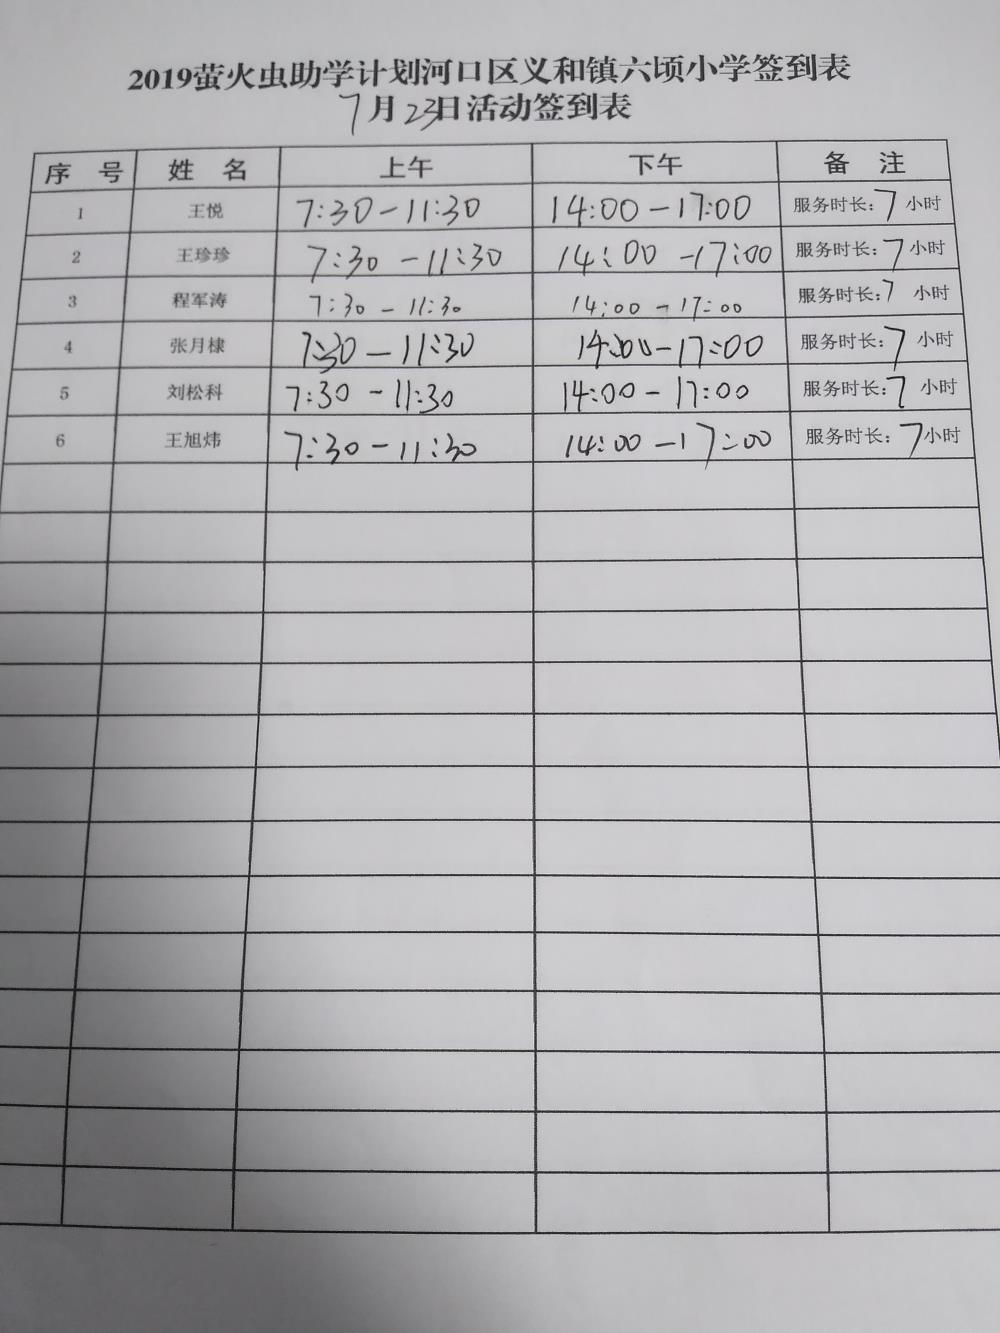 2019萤火虫助学计划河口区义和镇六顷小学签到表
7月23日活动签到表
序 号 姓 名 上午 下午 备 注
1 王悦 7:30-11:30 14:00-17:00 服务时长:7小时
2 王珍珍 7:30-11:30 14:00-17:00 服务时长:7小时
3 程军涛 7:30-11:30 14:00-17:00 服务时长:7小时
4 张月棣 7:30-11:30 14:00-17:00 服务时长:7小时
5 刘松科 7:30-11:30 14:00-17:00 服务时长:7小时
6 王旭炜 7:30-11:30 14:00-17:00 服务时长:7小时